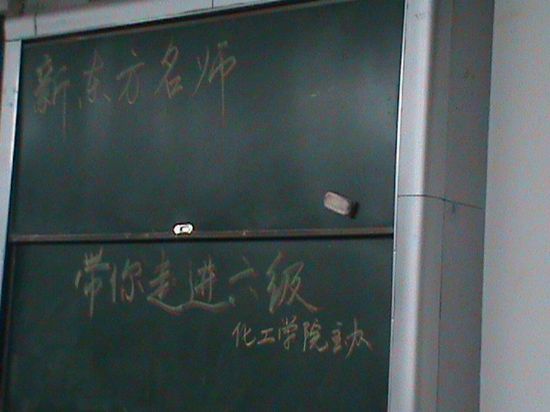 新东方名师
带你走进六级
化工学院主办